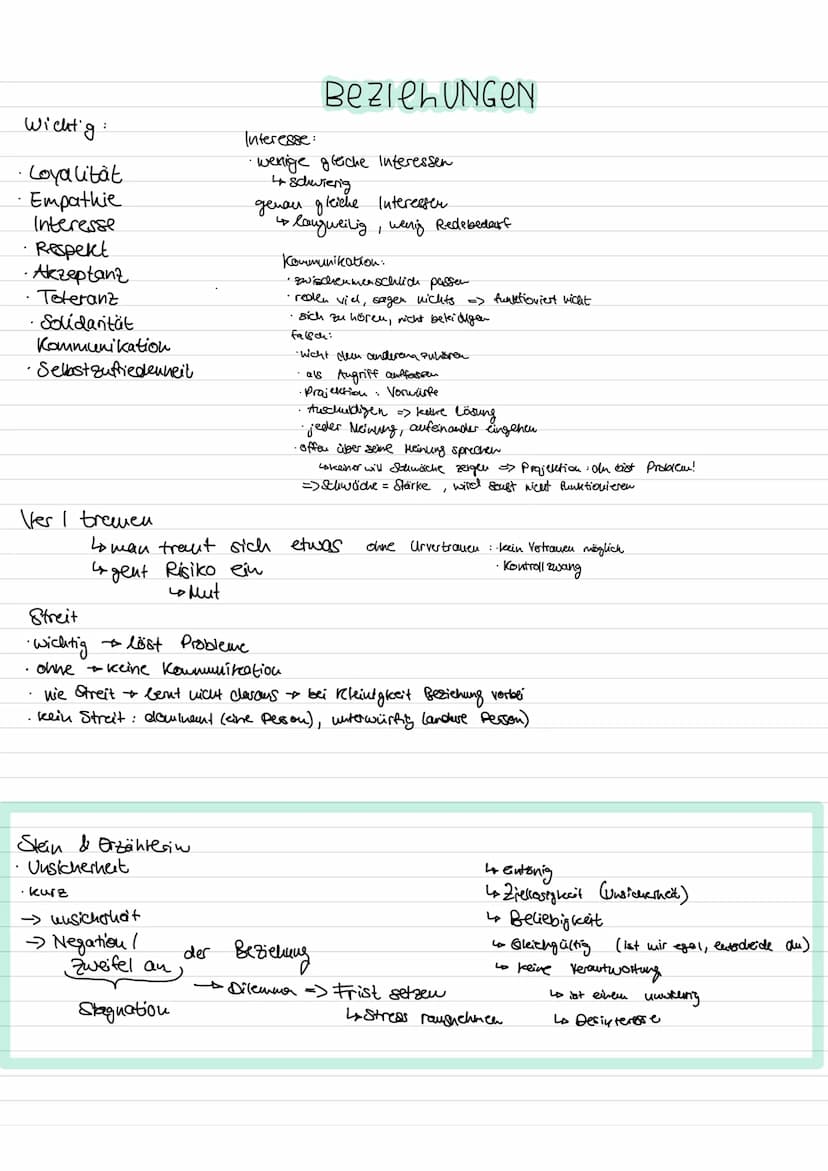 BEZIEHUNGEN
Wichtig:
· Loyalität
· Empathie
Interesse
· Respekt
· Akzeptanz
· Toleranz
· Solidarität
Kommunikation
· Selbstzufriedenheit
Interesse:
· wenige gleiche Interessen
↳ schwierig
genau gleiche Interessen
↳ langweilig, wenig Redebedarf
Kommunikation:
· zwischenmenschlich passen
· reden viel, sagen nichts => funktioniert nicht
· sich zu hören, nicht beleidigen
Falsch:
· nicht dem anderem zuhören
· als Angriff auffassen
· Projektion: Vorwürfe
· Anschuldigen => keine Lösung
· jeder Meinung, aufeinander eingehen
· offen über seine Meinung sprechen
↳ keiner will Schwäche zeigen => Projektion: du bist Problem!
=> Schwäche = Stärke, wird sonst nicht funktionieren
Ver / trauen
↳ man traut sich etwas ohne Urvertrauen: · kein Vertrauen möglich
↳ geht Risiko ein · Kontrollzwang
↳ Mut
Streit
· wichtig → löst Probleme
· ohne → keine Kommunikation
· nie Streit → lernt nicht daraus → bei Kleinigkeit Beziehung vorbei
· kein Streit: dominant (eine Person), unterwürfig (andere Person)
Stein & Erzählerin
· Unsicherheit
· kurz
→ unsicherheit
→ Negation /
Zweifel an der Beziehung
Stagnation
→ Dilemma => Frist setzen
↳ Stress rausnehmen
↳ eintönig
↳ Ziellosigkeit (Unsicherheit)
↳ Beliebigkeit
↳ Gleichgültig (ist mir egal, entscheide du)
↳ keine Verantwortung
↳ ist einem unwichtig
↳ Desinteresse